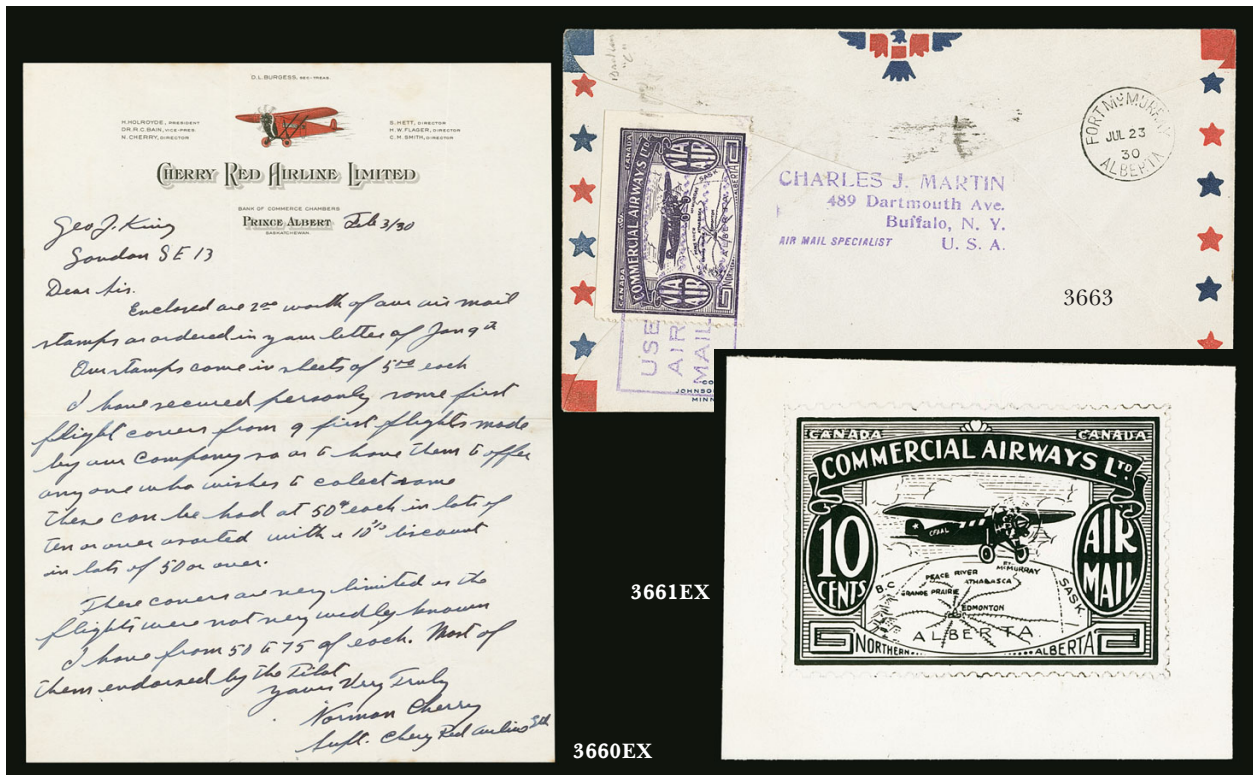 D.L. BURGESS, SEC-TREAS.
H. HOLROYDE, PRESIDENT
DR. R.C. BAIN, VICE-PRES.
N. CHERRY, DIRECTOR
S. HETT, DIRECTOR
H.W. FLAGER, DIRECTOR
C.M. SMITH, DIRECTOR
CHERRY RED AIRLINE LIMITED
BANK OF COMMERCE CHAMBERS
PRINCE ALBERT Feb 3/30
SASKATCHEWAN
Geo J. King
London S E 13
Dear Sir.
Enclosed are 2.00 worth of our air mail
stamps as ordered in your letter of Jan 9th
Our stamps come in sheets of 5.00 each
I have secured personly some first
flight covers from 9 first flights made
by our Company so as to have them to offer
any one who wishes to colect some
These can be had at 50¢ each in lots of
ten or over asorted with a 10% discount
in lots of 50 or over.
These covers are very limited as the
flights were not very widly known
I have from 50 to 75 of each. Most of
them endorsed by the Pilot
yours Very Truly
Norman Cherry
Supt. Cherry Red Airlines Ltd
3660EX
FORT MCMURRAY
JUL 23
30
ALBERTA
CHARLES J. MARTIN
489 Dartmouth Ave.
Buffalo, N. Y.
AIR MAIL SPECIALIST U. S. A.
3663
CANADA
COMMERCIAL AIRWAYS LTD.
ALBERTA
NORTHERN
USE
AIR
MAIL
JOHNSO
MINN
3661EX
CANADA CANADA
COMMERCIAL AIRWAYS LTD.
10
CENTS
AIR
MAIL
CF AAL
PEACE RIVER
FT. McMURRAY
ATHABASCA
GRANDE PRAIRIE
EDMONTON
B.C.
SASK
ALBERTA
NORTHERN ALBERTA